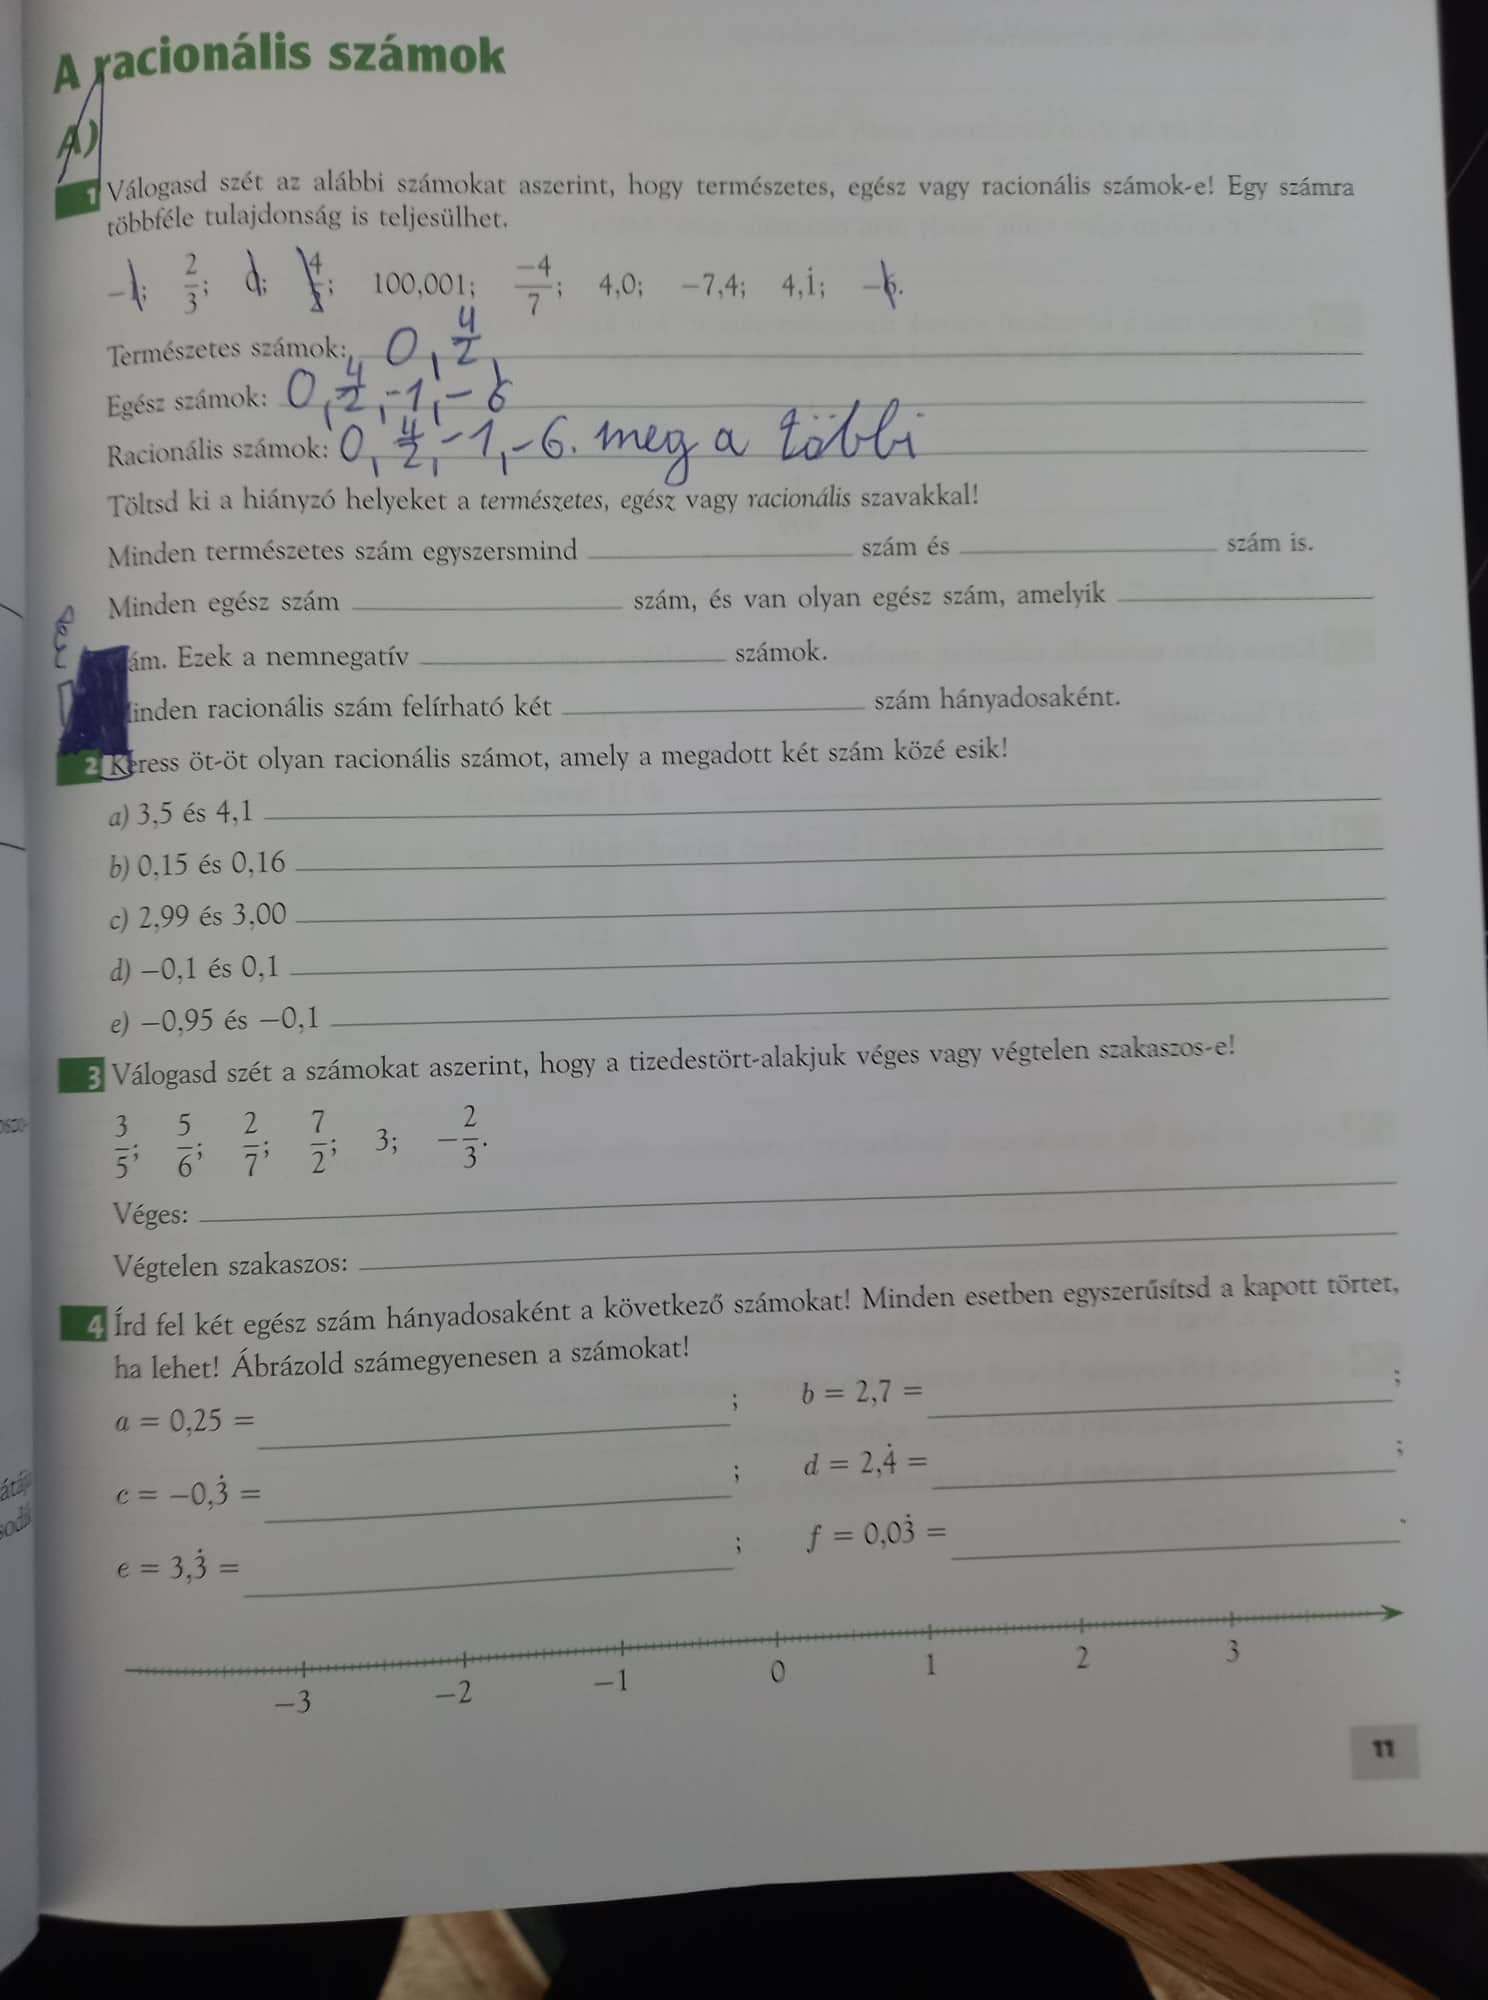 A racionális számok
A)
1 Válogasd szét az alábbi számokat aszerint, hogy természetes, egész vagy racionális számok-e! Egy számra
többféle tulajdonság is teljesülhet.
−1; 2/3; 0; 4/2; 100,001; −4/7; 4,0; −7,4; 4,1̇; −6.
Természetes számok: 0, 4/2,
Egész számok: 0, 4/2, -1, -6
Racionális számok: 0, 4/2, -1, -6. meg a többi
Töltsd ki a hiányzó helyeket a természetes, egész vagy racionális szavakkal!
Minden természetes szám egyszersmind ____ szám és ____ szám is.
Minden egész szám ____ szám, és van olyan egész szám, amelyik ____
ám. Ezek a nemnegatív ____ számok.
inden racionális szám felírható két ____ szám hányadosaként.
2 Keress öt-öt olyan racionális számot, amely a megadott két szám közé esik!
a) 3,5 és 4,1
b) 0,15 és 0,16
c) 2,99 és 3,00
d) −0,1 és 0,1
e) −0,95 és −0,1
3 Válogasd szét a számokat aszerint, hogy a tizedestört-alakjuk véges vagy végtelen szakaszos-e!
3/5; 5/6; 2/7; 7/2; 3; −2/3.
Véges:
Végtelen szakaszos:
4 Írd fel két egész szám hányadosaként a következő számokat! Minden esetben egyszerűsítsd a kapott törtet,
ha lehet! Ábrázold számegyenesen a számokat!
a = 0,25 = ____ ; b = 2,7 = ____ ;
c = −0,3̇ = ____ ; d = 2,4̇ = ____ ;
e = 3,3̇ = ____ ; f = 0,03̇ = ____ .
−3 −2 −1 0 1 2 3
11